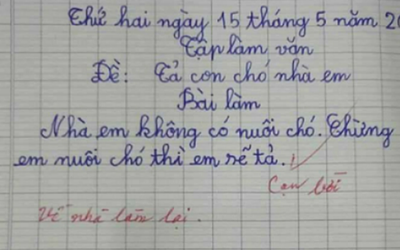 Thứ hai ngày 15 tháng 5 năm 20
Tập làm văn
Đề: Tả con chó nhà em
Bài làm
Nhà em không có nuôi chó. Chừng
em nuôi chó thì em sẽ tả.
Cạn lời
Về nhà làm lại.